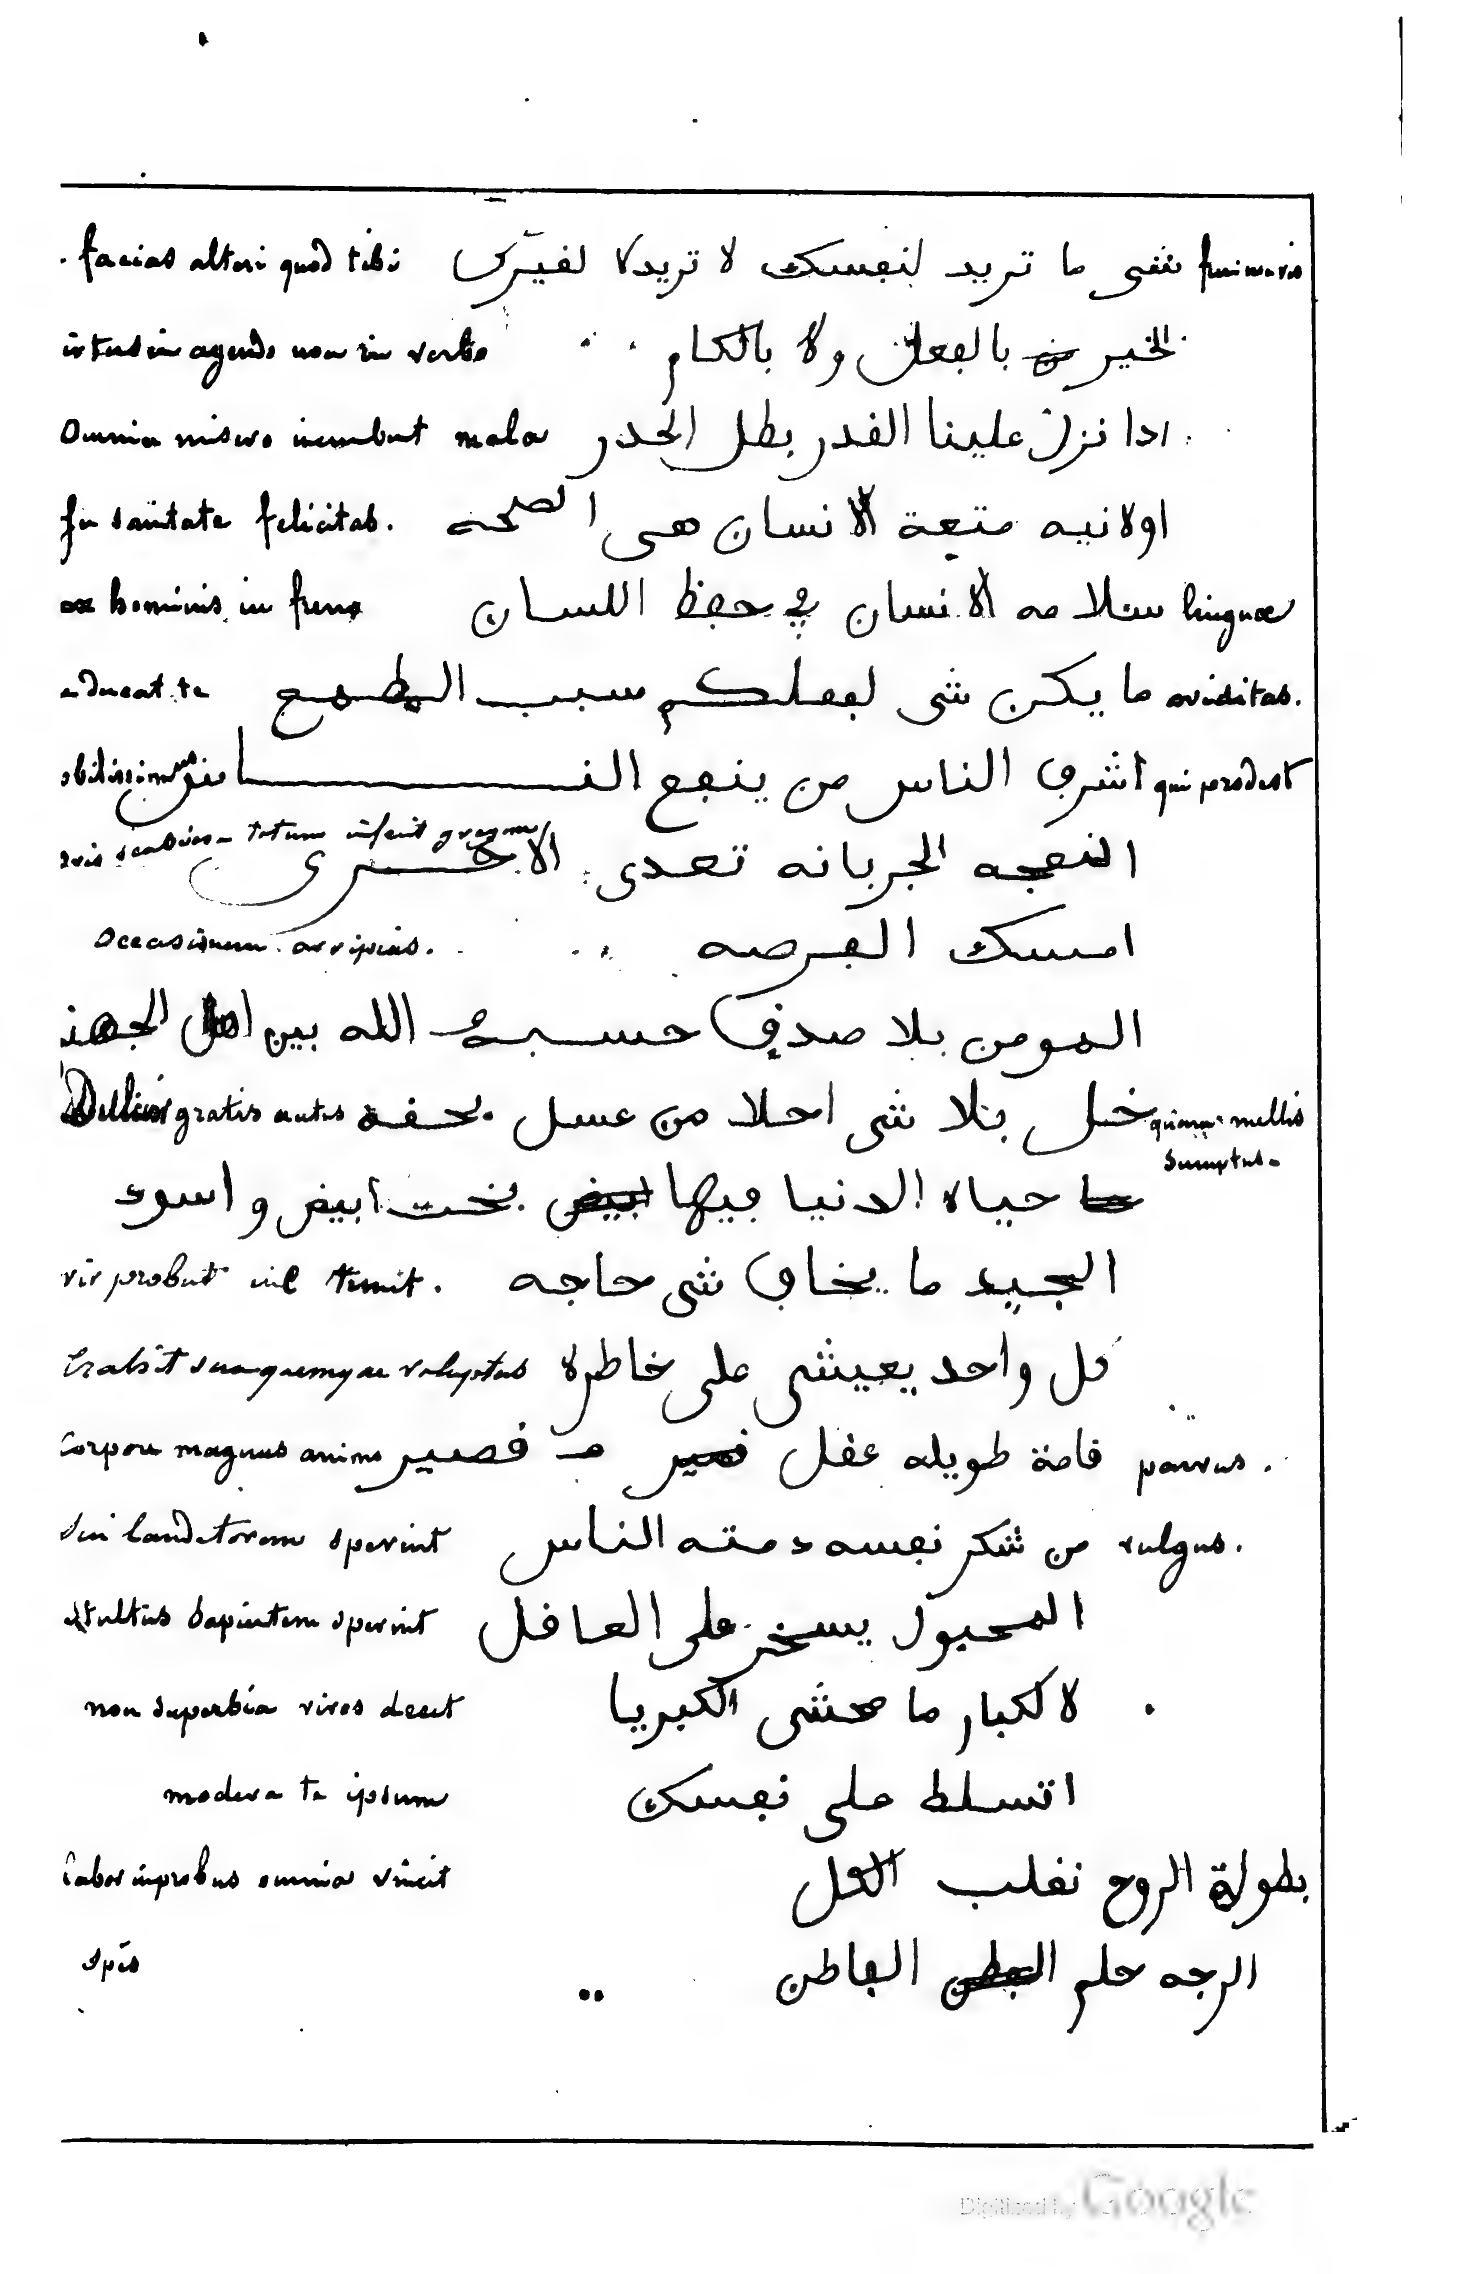 facias alteri quod tibi شى ما تريد لنفسك لا تريده لغيرك
in agendo non in verbo الخير بالفعل ولا بالكام
Omnia misero incumbunt mala ادا نزل علينا القدر بطل الحدر
In sanitate felicitas. اولانيه متعة الانسان هى الصحه
hominis in freno سلامه الانسان في حفظ اللسان linguae
educat te ما يكن شى لفعلكم سبب الطمع aviditas.
اشرف الناس من ينفع الناس qui prodest
totum inficit gregem النعجه الجربانه تعدى الاخرى
Occasionem arripias. امسك الفرصه
المومن بلا صدق حسبه الله بين اهل الجهنـ
gratis خل بلا شى احلا من عسل بحقه quam mellis
sumptus.
حياه الدنيا فيها بخت ابيض و اسود
vir probus nil timit. الجيد ما يخاف شى حاجه
trahit sua quemque voluptas كل واحد يعيش على خاطره
corpore magnus animo قامة طويله عقل قصير parvus.
sui laudatorem spernit من شكر نفسه دمته الناس vulgus.
stultus sapientem spernit المهبول يسخر على العاقل
non superbia viros decet لالكبار ما الكبريا
modera te ipsum اتسلط على نفسك
labor inprobus omnia vincit بطولة الروح نغلب الكل
spes الرجه حلم الفاطن
Digitized by Google